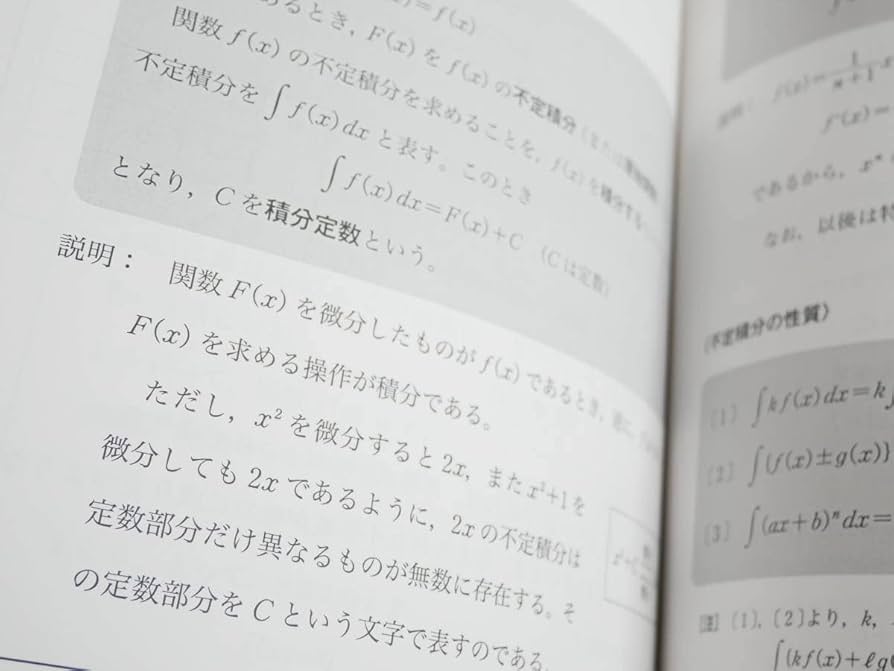 =f(x)
あるとき，F(x) を f(x) の不定積分
関数 f(x) の不定積分を求めることを，f(x) を積分する
不定積分を ∫f(x)dx と表す。このとき
∫f(x)dx=F(x)+C （C は定数）
となり，C を積分定数という。
説明： 関数 F(x) を微分したものが f(x) であるとき，
F(x) を求める操作が積分である。
ただし，x² を微分すると 2x，また x²+1 を
微分しても 2x であるように，2x の不定積分は
定数部分だけ異なるものが無数に存在する。そ
の定数部分を C という文字で表すのである。
f'(x)=
であるから，xⁿ
なお，以後は特
〈不定積分の性質〉
〔1〕 ∫kf(x)dx=k∫
〔2〕 ∫{f(x)±g(x)}
〔3〕 ∫(ax+b)ⁿdx=
〔1〕，〔2〕より，k，
∫(kf(x)+ℓg